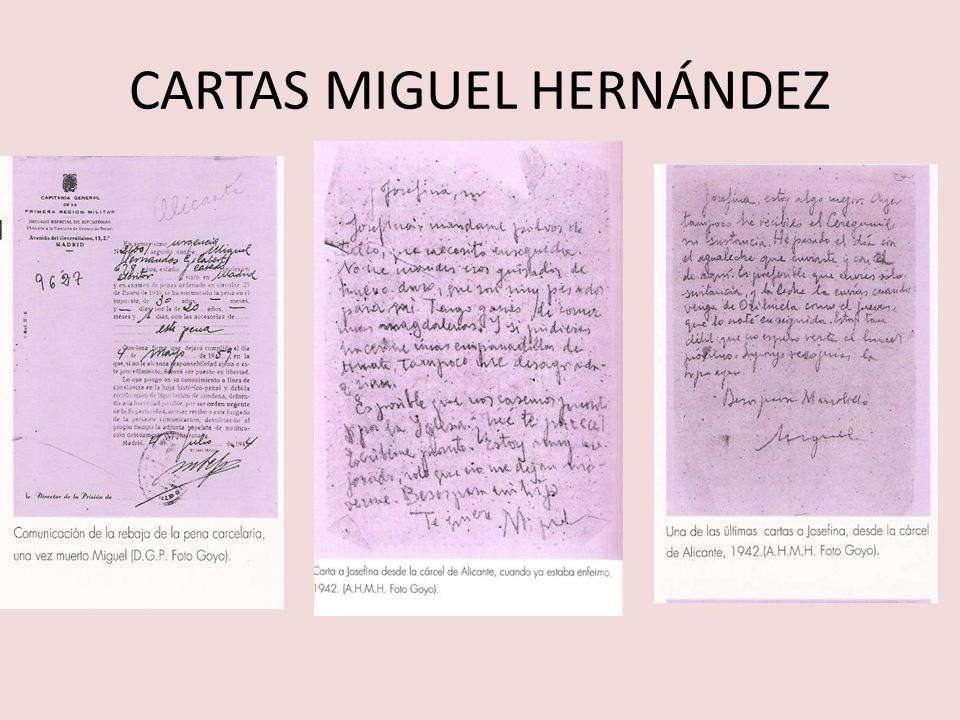 CARTAS MIGUEL HERNÁNDEZ
CAPITANÍA GENERAL
DE LA
PRIMERA REGION MILITAR
JUZGADO ESPECIAL DE EJECUTORIAS
Avenida del Generalísimo, 13, 2.º
MADRID
Alicante
9627
urgencia
seguido contra Miguel
Hernandez Gilabert
años, estado casado
visto en Madrid
y en examen de penas ordenado en circular 25
de Enero de 1940, se ha conmutado la pena en él
impuesta, de 30 años, — meses,
y — días por la de 20 años,
meses y 1 días, con las accesorias de
esta pena
Condena firme que dejará cumplida el día
4 de mayo de 19 en la
que, si no le alcanza responsabilidad ajena a es-
te procedimiento, deberá ser puesto en libertad.
Lo que pongo en su conocimiento a fines de
constancia en la hoja histórico-penal y debida
rectificación de liquidación de condena, debien-
do a la brevedad posible, por ser orden urgente
de la Superioridad, acusar recibo a este Juzgado
de la presente comunicación, devolviendo al
propio tiempo la adjunta papeleta de notifica-
ción debidamente cumplimentada.
Madrid, 4 de julio de 1944
Sr. Director de la Prisión de
Comunicación de la rebaja de la pena carcelaria,
una vez muerto Miguel (D.G.P. Foto Goyo).
Josefina,
Josefina, mándame polvos de
talco, que necesito enseguida.
No me mandes esos guisados de
huevo duro, que son muy pesados
para mí. Tengo ganas de comer
unas magdalenas. Y si pudieras
hacerme unas empanadillas de
tomate, tampoco me desagrada-
rían.
Es posible que nos casemos pronto
por la Iglesia. ¿Qué te parece?
pronto. Estoy muy me
jorado, solo que no me dejan mo-
verme. Besos para mi hijo
Te quiere Miguel
Carta a Josefina desde la cárcel de Alicante, cuando ya estaba enfermo,
1942. (A.H.M.H. Foto Goyo).
Josefina, estoy algo mejor. Ayer
tampoco he recibido el Ceregumil
ni sustancia. He pasado el día con
el agualeche que enviaste y con té
de aquí. Es preferible que envíes solo
sustancia, y la leche la envías cuando
venga de Orihuela como el jueves,
que lo noté enseguida. Estoy tan
débil que no espero verte el lunes
próximo,
Besos para Manolillo
Miguel
Una de las últimas cartas a Josefina, desde la cárcel
de Alicante, 1942.(A.H.M.H. Foto Goyo).